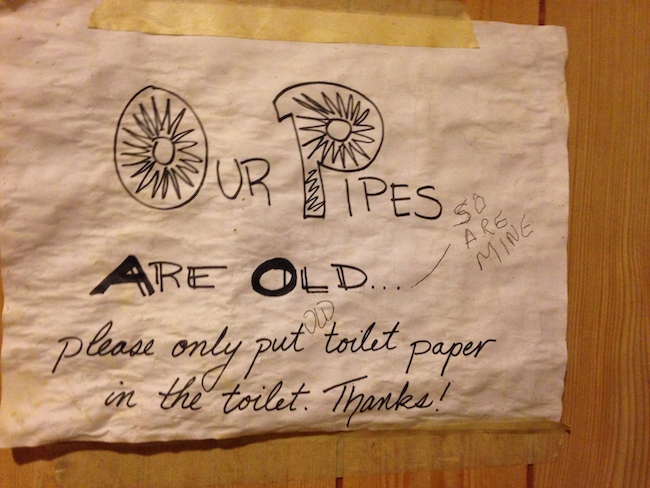 OUR PIPES
SO
ARE
MINE
ARE OLD...
OLD
please only put toilet paper
in the toilet. Thanks!